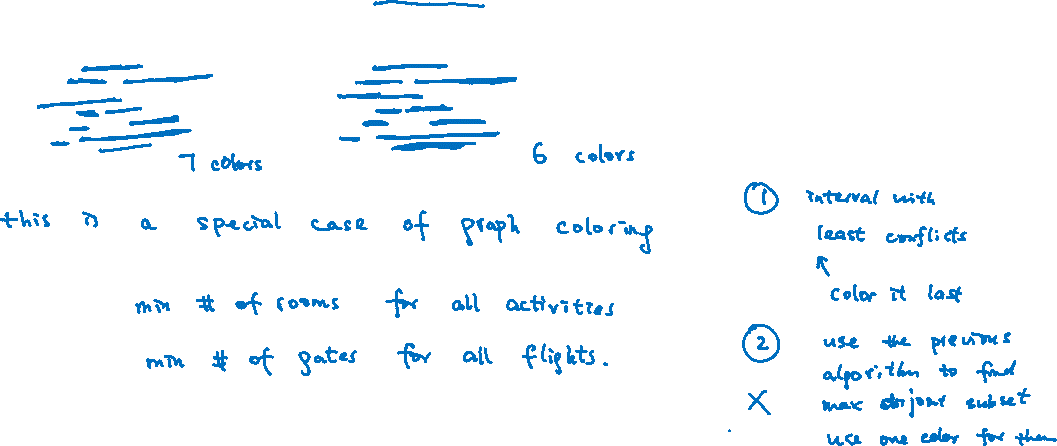 7 colors
6 colors
this is a special case of graph coloring
min # of rooms for all activities
min # of gates for all flights.
① interval with
least conflicts
↖
color it last
② use the previous
algorithm to find
X max disjoint subset
use one color for them